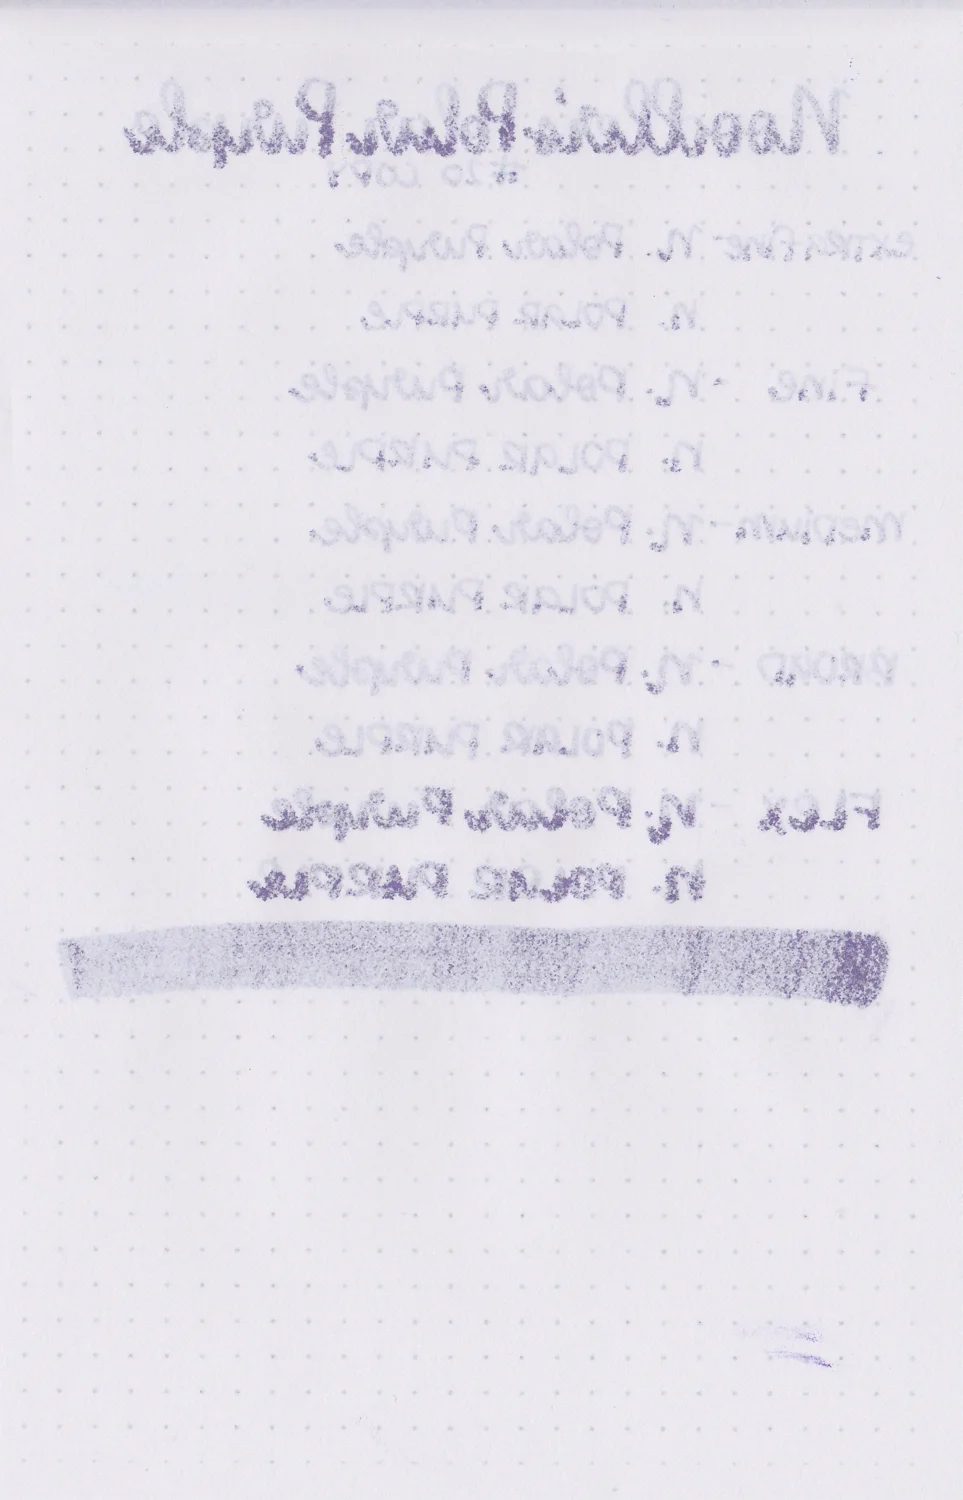 Noodler's Polar Purple
#20 Copy
Extra Fine - N. Polar Purple
N. POLAR PURPLE
Fine - N. Polar Purple
N. POLAR PURPLE
Medium - N. Polar Purple
N. POLAR PURPLE
BROAD - N. Polar Purple
N. POLAR PURPLE
FLEX - N. Polar Purple
N. POLAR PURPLE